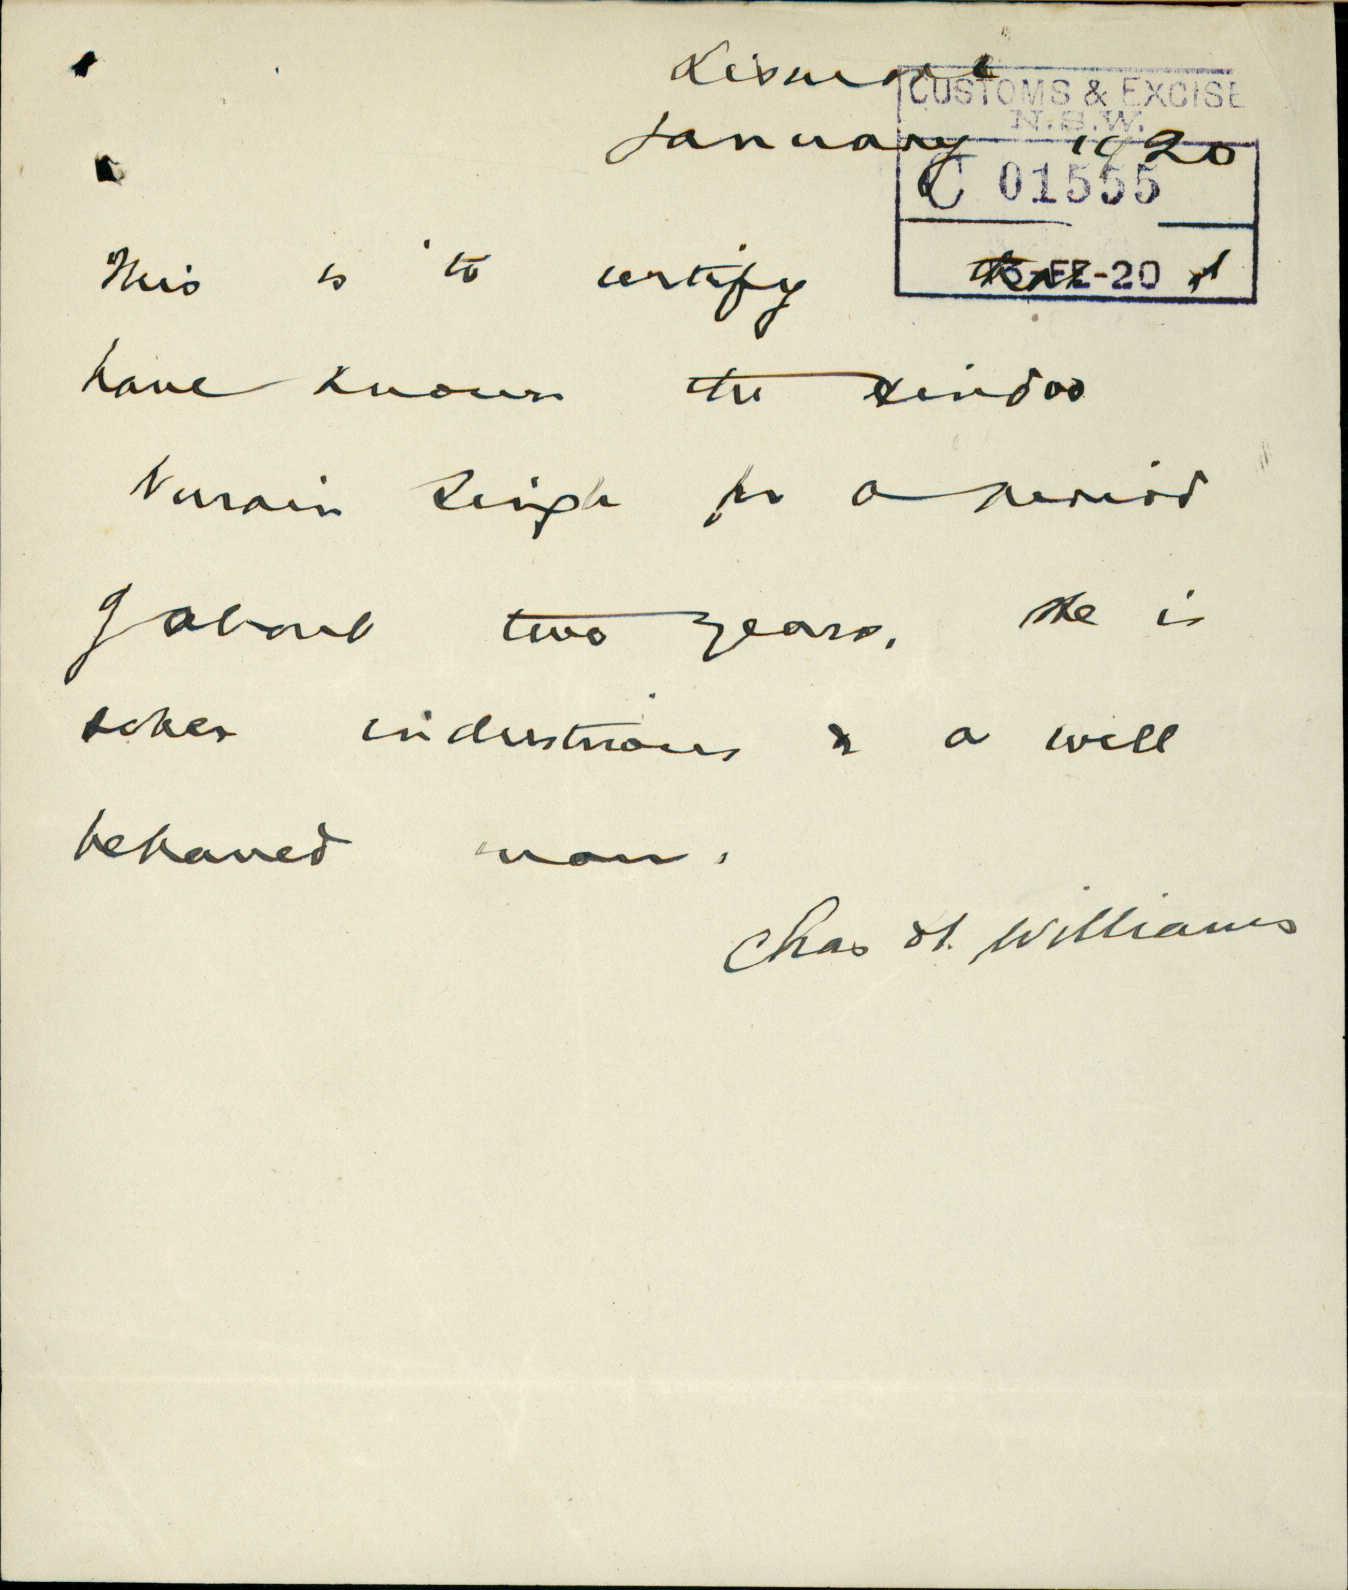 Lismore
CUSTOMS & EXCISE
N.S.W.
January 1920
C 01555
-FE-20
This is to certify that I
have known the Hindoo
Narain Singh for a period
of about two years, He is
sober industrious & a well
behaved man.
Chas H. Williams